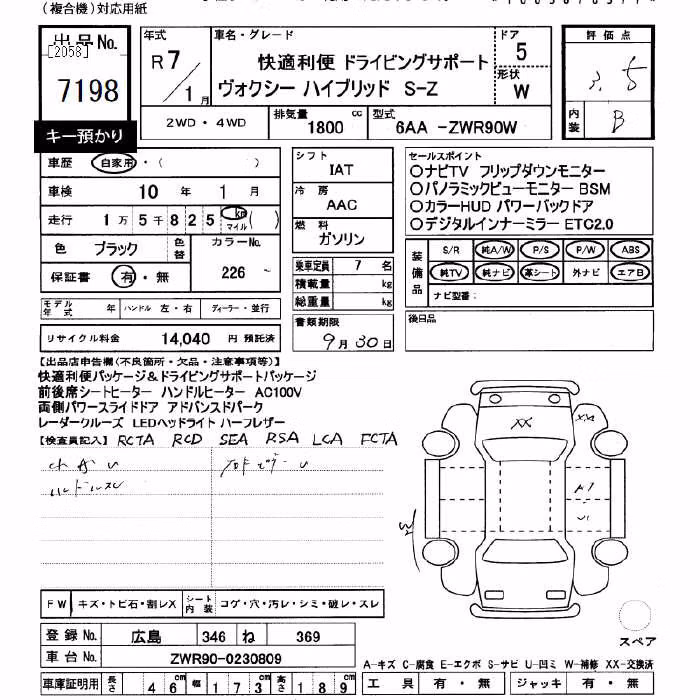 (複合機)対応用紙
出品No.
[2058]
7198
キー預かり
年式
R7/1月
車名・グレード
快適利便 ドライビングサポート
ヴォクシー ハイブリッド S-Z
ドア
5
形状
W
評価点
3.5
内装
B
2WD・4WD
排気量
1800 cc
型式
6AA -ZWR90W
車歴 自家用・( )
車検 10 年 1 月
走行 1万5千825 km マイル ( )
色 ブラック 色替
カラーNo.
226 ~
保証書 有・無
シフト
IAT
冷房
AAC
燃料
ガソリン
乗車定員 7 名
積載量 kg
総重量 kg
セールスポイント
○ナビTV フリップダウンモニター
○パノラミックビューモニター BSM
○カラーHUD パワーバックドア
○デジタルインナーミラー ETC2.0
装備品
S/R 純A/W P/S P/W ABS
純TV 純ナビ 革シート 外ナビ エアB
ナビ型番:
モデル年式 年 ハンドル 左・右 ディーラー・並行
書類期限
9月30日
後日品
リサイクル料金 14,040 円 預託済
【出品店申告欄(不良箇所・欠品・注意事項等)】
快適利便パッケージ&ドライビングサポートパッケージ
前後席シートヒーター ハンドルヒーター AC100V
両側パワースライドドア アドバンスドパーク
レーダークルーズ LEDヘッドライト ハーフレザー
【検査員記入】 RCTA RCD SEA RSA LCA FCTA
ハンドルスレ
XX
XX
A1
W2
FW キズ・トビ石・割レX
シート内装 コゲ・穴・汚レ・シミ・破レ・スレ
登録No. 広島 346 ね 369
車台No. ZWR90-0230809
車庫証明用 長さ 46 cm 幅 173 cm 高さ 189 cm
スペア
A-キズ C-腐食 E-エクボ S-サビ U-凹ミ W-補修 XX-交換済
工具 有・無 ジャッキ 有・無